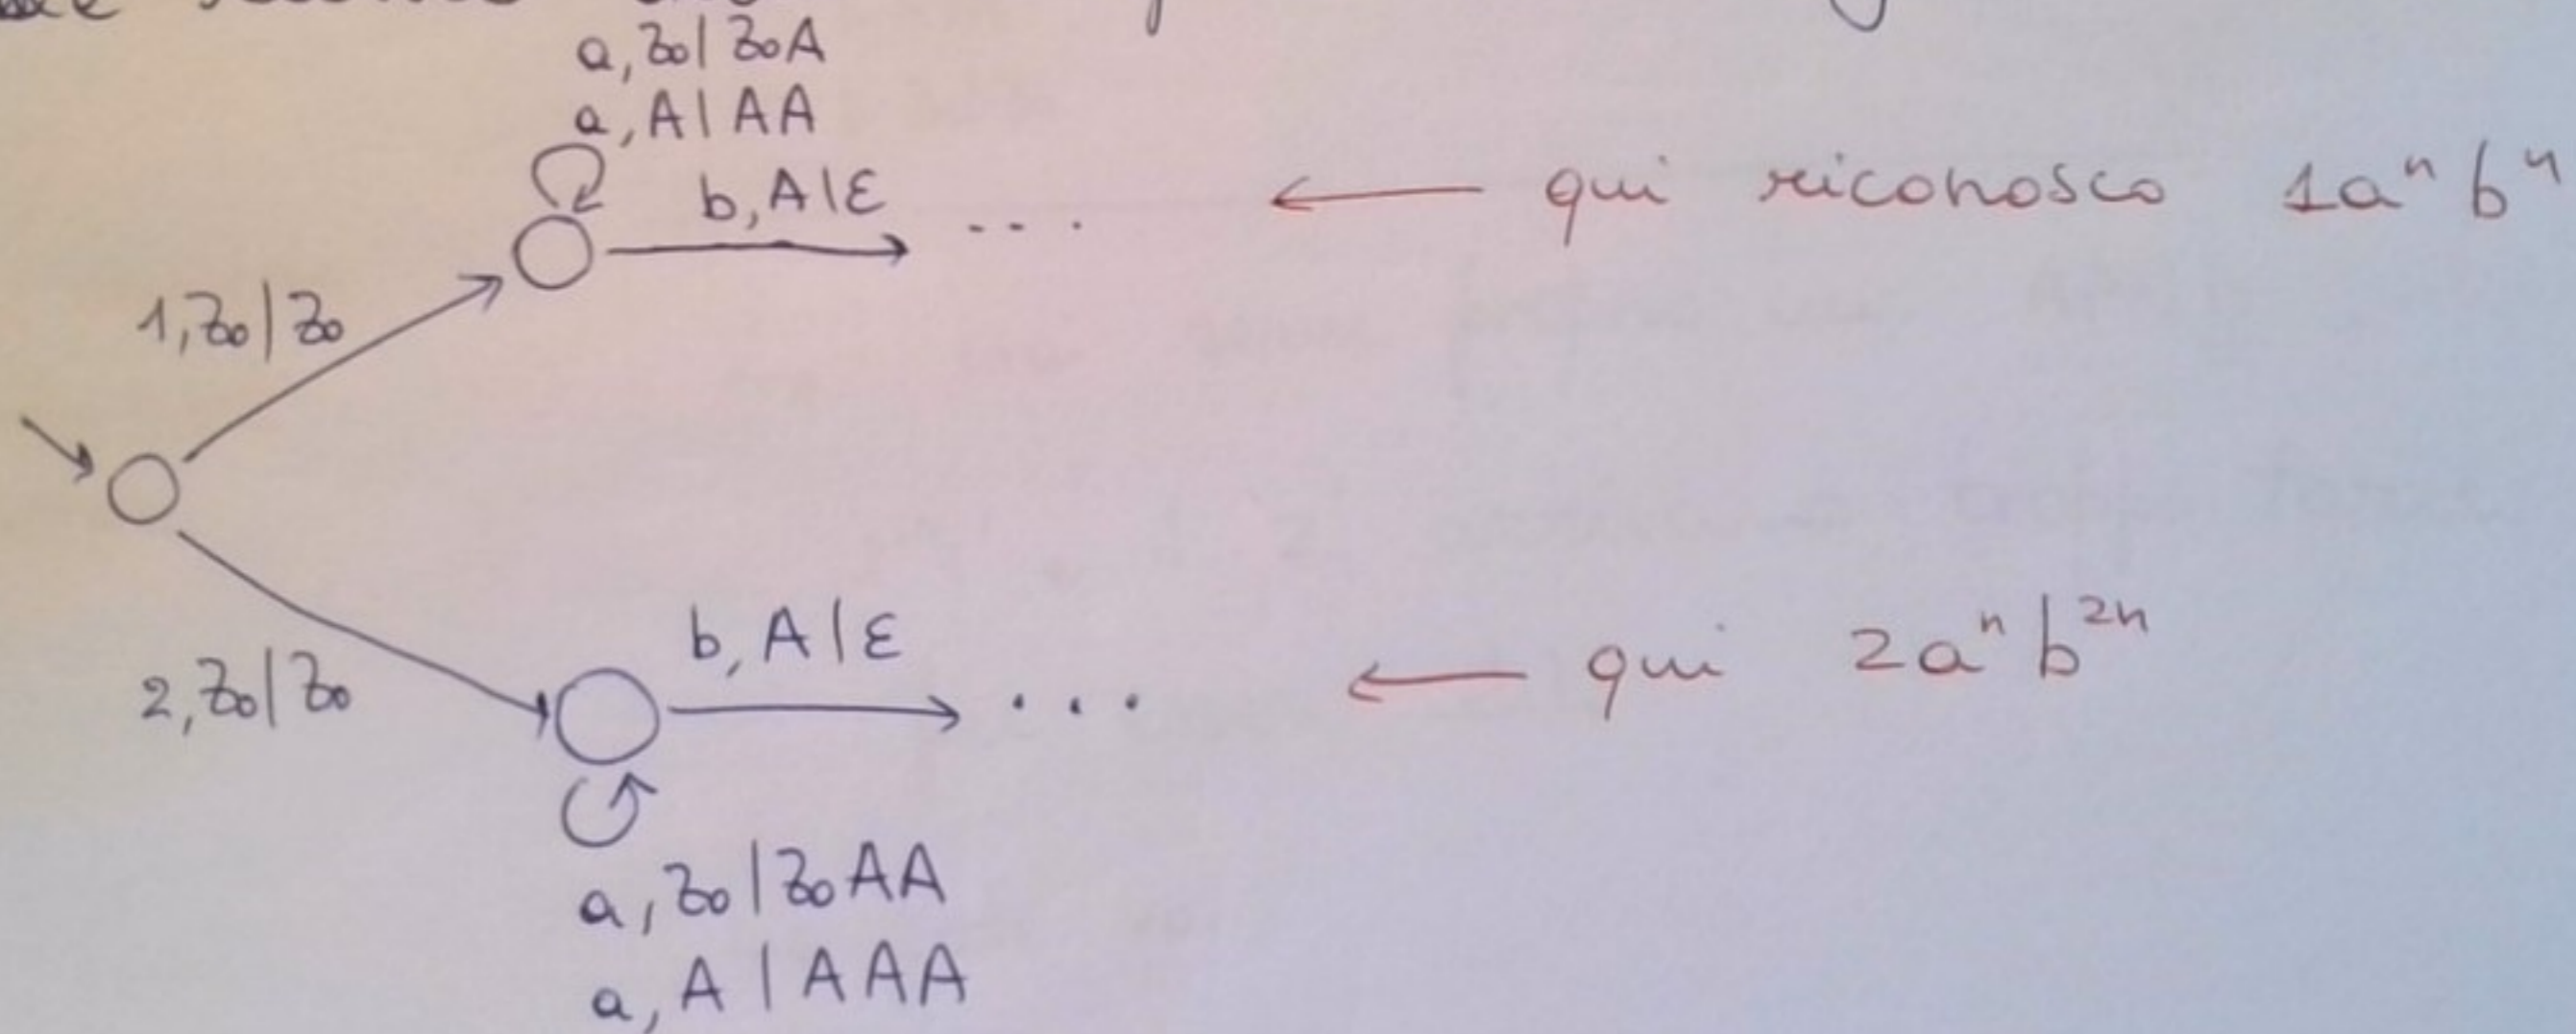 a, Z₀ | Z₀A
a, A | AA
b, A | ε
... ← qui riconosco 1aⁿ bⁿ
1, Z₀ | Z₀
b, A | ε
... ← qui 2aⁿ b²ⁿ
2, Z₀ | Z₀
a, Z₀ | Z₀AA
a, A | AAA